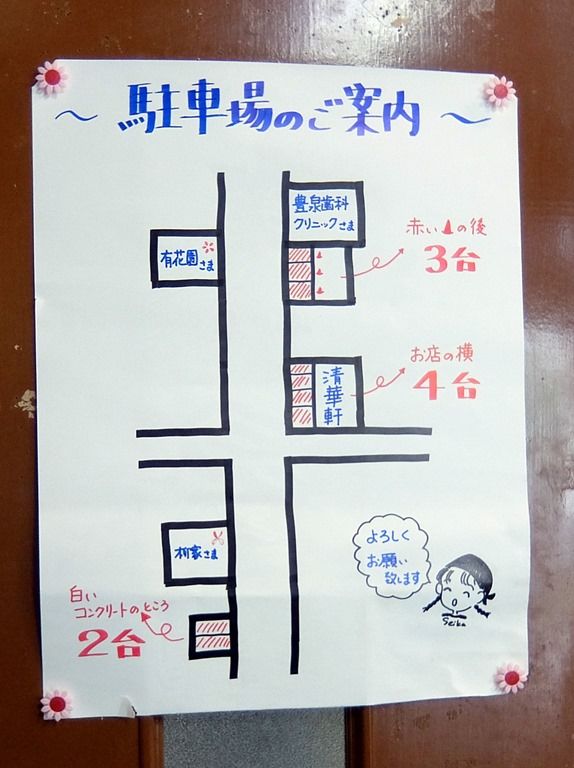 ～駐車場のご案内～
豊泉歯科
クリニックさま
有花園さま
赤い の後
3台
お店の横
4台
清華軒
柳家さま
白い
コンクリートのところ
2台
よろしく
お願い
致します
Seika